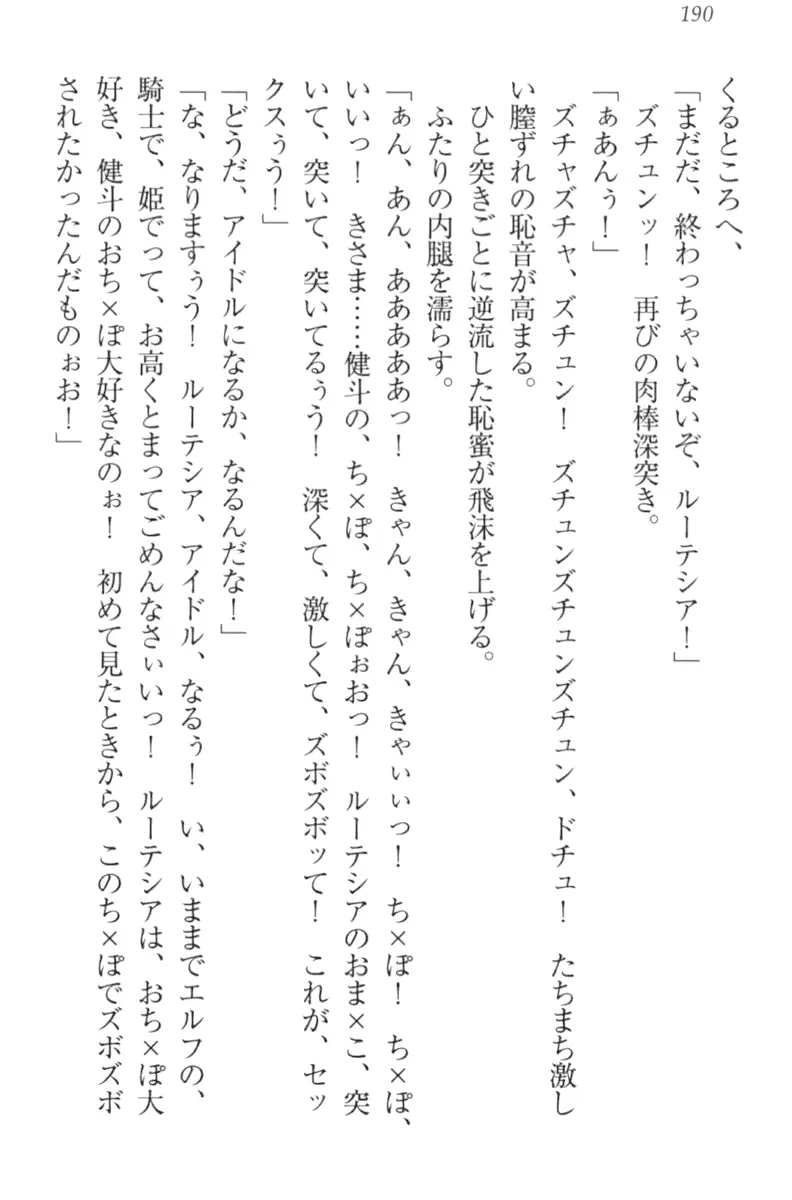 190
くるところへ、
「まだだ、終わっちゃいないぞ、ルーテシア！」
ズチュンッ！　再びの肉棒深突き。
「ぁあんぅ！」
ズチャズチャ、ズチュン！　ズチュンズチュンズチュン、ドチュ！　たちまち激し
い膣ずれの恥音が高まる。
ひと突きごとに逆流した恥蜜が飛沫を上げる。
ふたりの内腿を濡らす。
「ぁん、あん、あああああっ！　きゃん、きゃん、きゃぃぃっ！　ち×ぽ！　ち×ぽ、
いいっ！　きさま……健斗の、ち×ぽ、ち×ぽぉおっ！　ルーテシアのおま×こ、突
いて、突いて、突いてるぅう！　深くて、激しくて、ズボズボッて！　これが、セッ
クスぅう！」
「どうだ、アイドルになるか、なるんだな！」
「な、なりますぅう！　ルーテシア、アイドル、なるぅ！　い、いままでエルフの、
騎士で、姫でって、お高くとまってごめんなさぃいっ！　ルーテシアは、おち×ぽ大
好き、健斗のおち×ぽ大好きなのぉ！　初めて見たときから、このち×ぽでズボズボ
されたかったんだものぉお！」